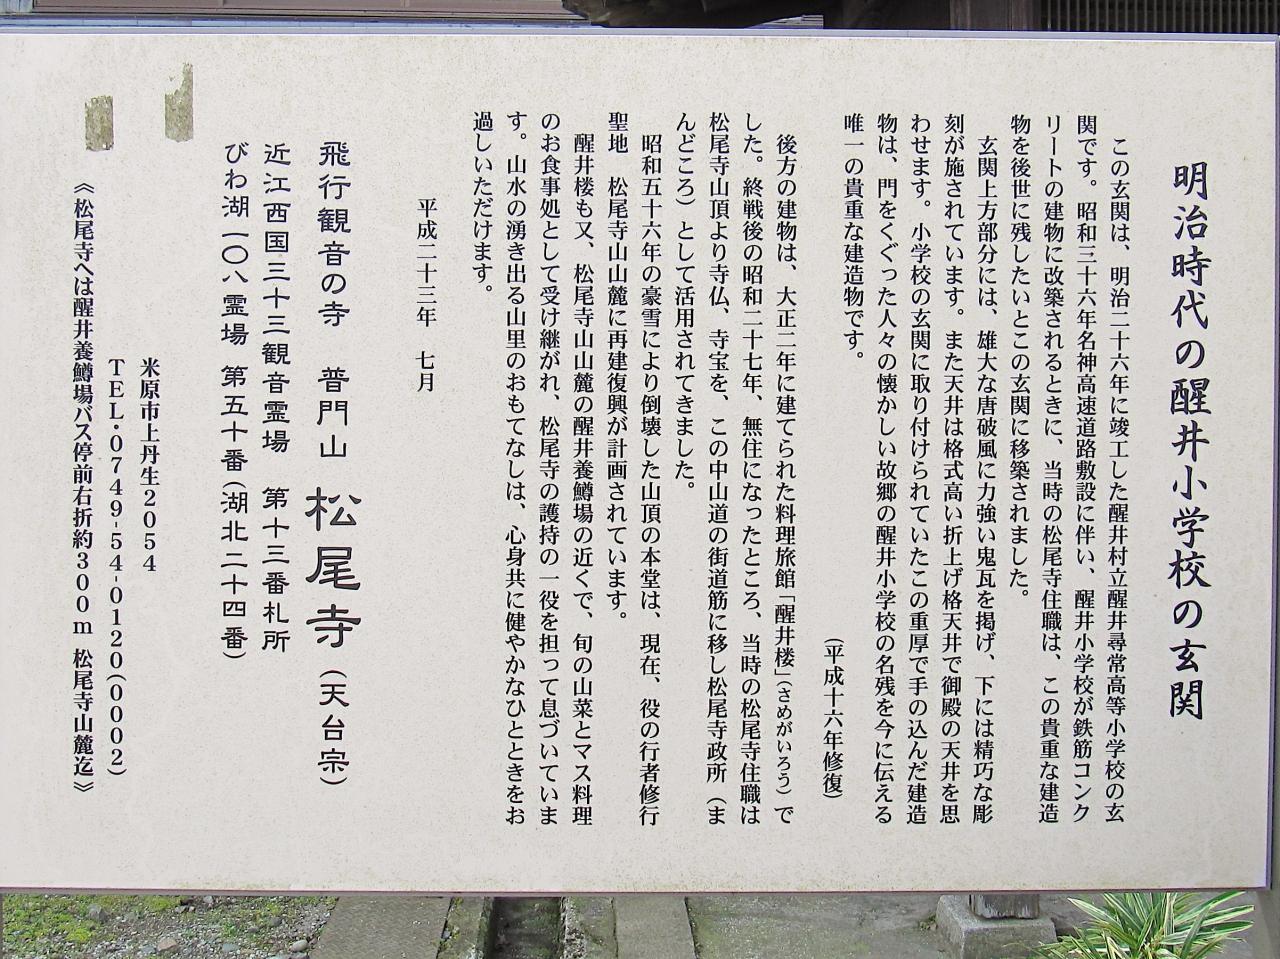 明治時代の醒井小学校の玄関
この玄関は、明治二十六年に竣工した醒井村立醒井尋常高等小学校の玄
関です。昭和三十六年名神高速道路敷設に伴い、醒井小学校が鉄筋コンク
リートの建物に改築されるときに、当時の松尾寺住職は、この貴重な建造
物を後世に残したいとこの玄関に移築されました。
玄関上方部分には、雄大な唐破風に力強い鬼瓦を掲げ、下には精巧な彫
刻が施されています。また天井は格式高い折上げ格天井で御殿の天井を思
わせます。小学校の玄関に取り付けられていたこの重厚で手の込んだ建造
物は、門をくぐった人々の懐かしい故郷の醒井小学校の名残を今に伝える
唯一の貴重な建造物です。
(平成十六年修復)
後方の建物は、大正二年に建てられた料理旅館「醒井楼」(さめがいろう)で
した。終戦後の昭和二十七年、無住になったところ、当時の松尾寺住職は
松尾寺山頂より寺仏、寺宝を、この中山道の街道筋に移し松尾寺政所(ま
んどころ)として活用されてきました。
昭和五十六年の豪雪により倒壊した山頂の本堂は、現在、役の行者修行
聖地 松尾寺山山麓に再建復興が計画されています。
醒井楼も又、松尾寺山山麓の醒井養鱒場の近くで、旬の山菜とマス料理
のお食事処として受け継がれ、松尾寺の護持の一役を担って息づいていま
す。山水の湧き出る山里のおもてなしは、心身共に健やかなひとときをお
過しいただけます。
平成二十三年 七月
飛行観音の寺 普門山 松尾寺(天台宗)
近江西国三十三観音霊場 第十三番札所
びわ湖一〇八霊場 第五十番(湖北二十四番)
米原市上丹生2054
TEL・0749-54-0120(0002)
《松尾寺へは醒井養鱒場バス停前右折約300m 松尾寺山麓迄》